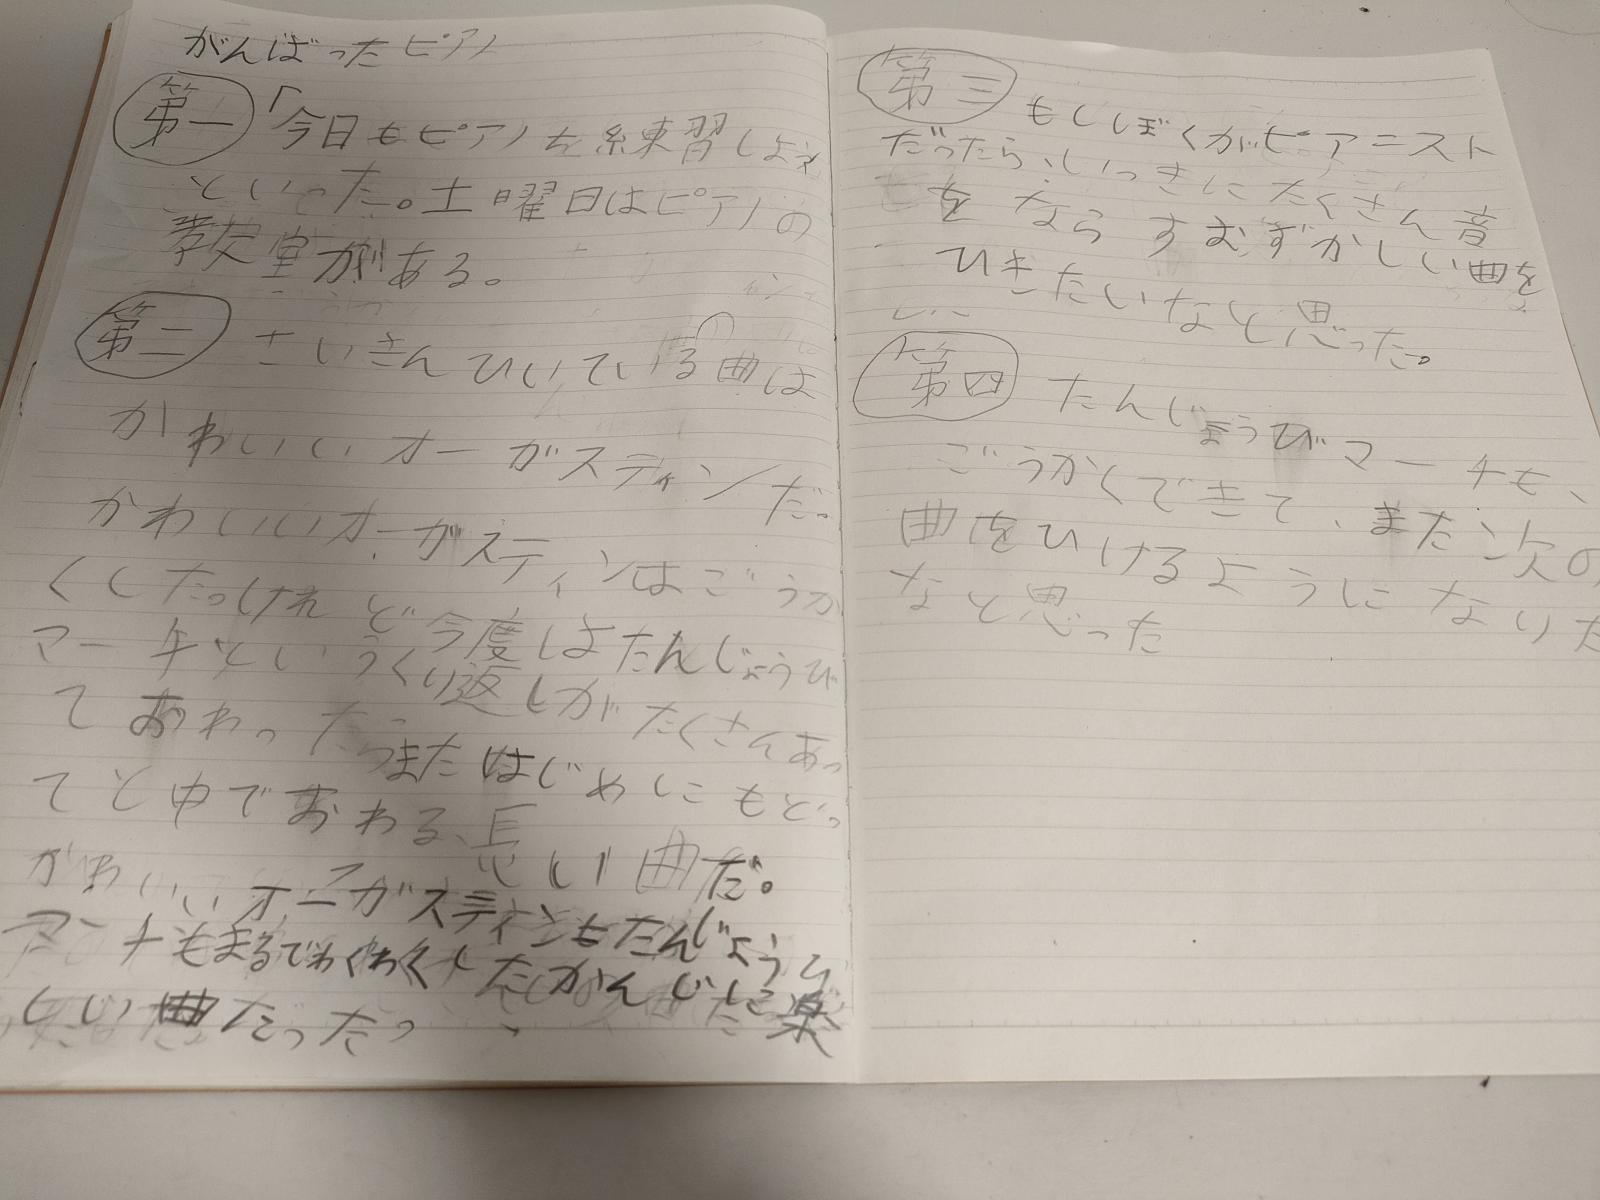 がんばったピアノ
第一 「今日もピアノを練習しよう
といった。土曜日はピアノの
教室がある。
第二 さいきんひいているの曲は
かわいいオーガスティンだ。
かわいいオーガスティンはごうか
くしたっけれど今度はたんじょうび
マーチというくり返しがたくさんあっ
ておわったらまたはじめにもどっ
てと中でおわる、長い曲だ。
かわいいオーガスティンもたんじょうび
マーチもまるでわくわくしたかんじで楽
しい曲だった
第三 もしぼくがピアニスト
だったら、いっきにたくさん音
をならすむずかしい曲を
ひきたいなと思った。
第四 たんじょうびマーチも、
ごうかくできて、また次の
曲をひけるようになりた
なと思った